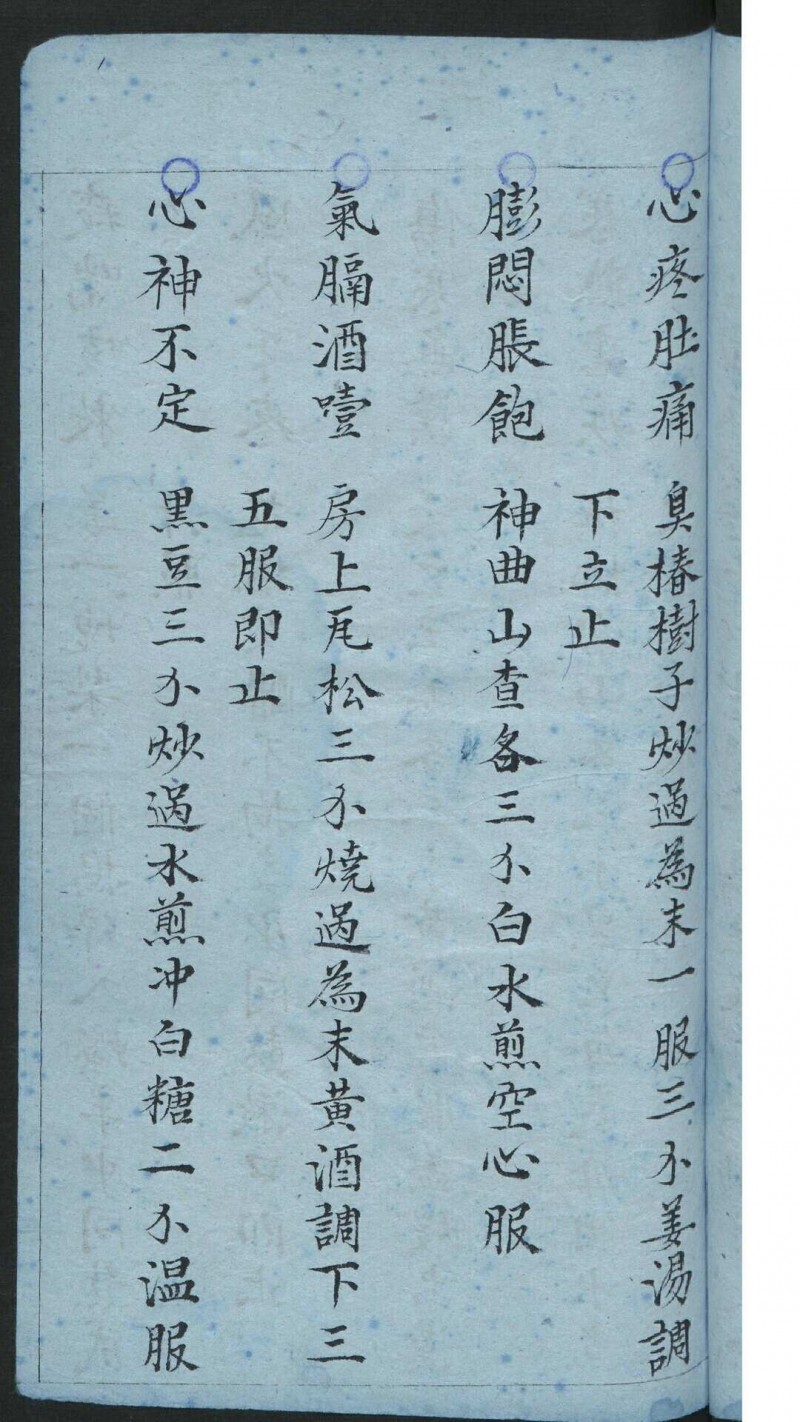 心疼肚痛 臭椿樹子炒過為末一服三分姜湯調
下立止
膨悶脹飽 神曲山查各三分白水煎空心服
氣膈酒噎 房上瓦松三分燒過為末黃酒調下三
五服即止
心神不定 黑豆三分炒過水煎冲白糖二分温服